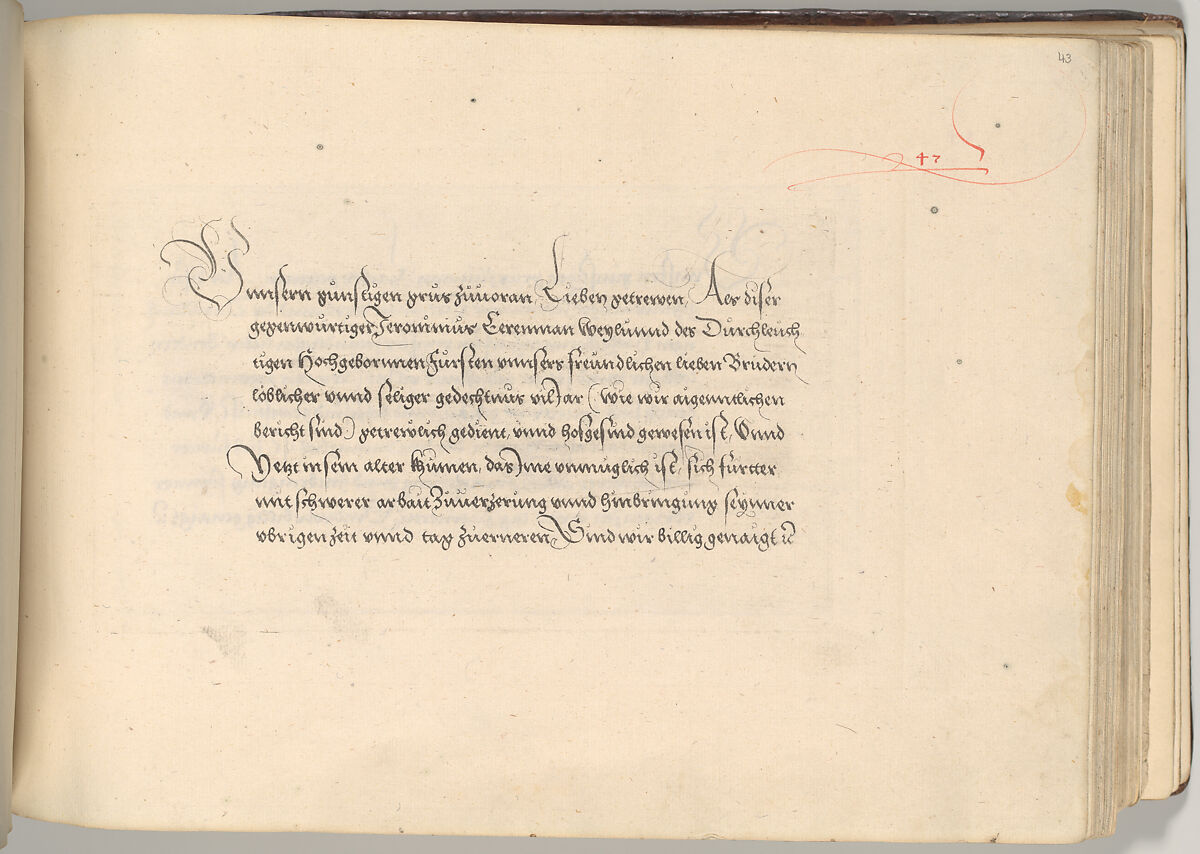 43
47
Vnnsern gunstigen grus zuuoran, Lieben getrewen, Als diser
gegenwurtiger Jeronimus Eerenman Weylunnd des Durchleuch
tigen Hochgebornnen Fursten vnnsers freundlichen lieben Brudern
loblicher vnnd seliger gedechtnus vil Jar (wie wir aigenntlichen
bericht sind) getrewlich gedient, vnnd hofgesind gewesen ist, Vnnd
Yetzt in sein alter kumen, das Ime vnmuglich ist, sich furtter
mit schwerer arbait zuuerzerung vnnd hinbringung seynner
vbrigen zeit vnnd tag zuerneren, Sind wir billig genaigt ꝛc